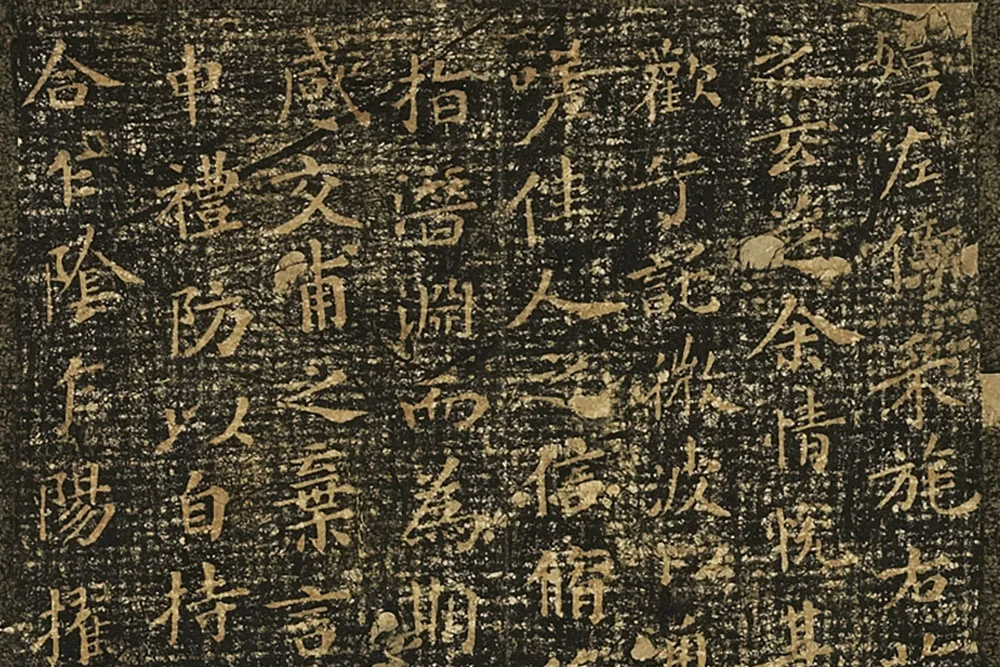 嬉左倚采旄右
之玄芝余情悅其
歡兮託微波以通
嗟佳人之信脩
指潛淵而為期
感交甫之棄言
申禮防以自持
合乍陰乍陽擢